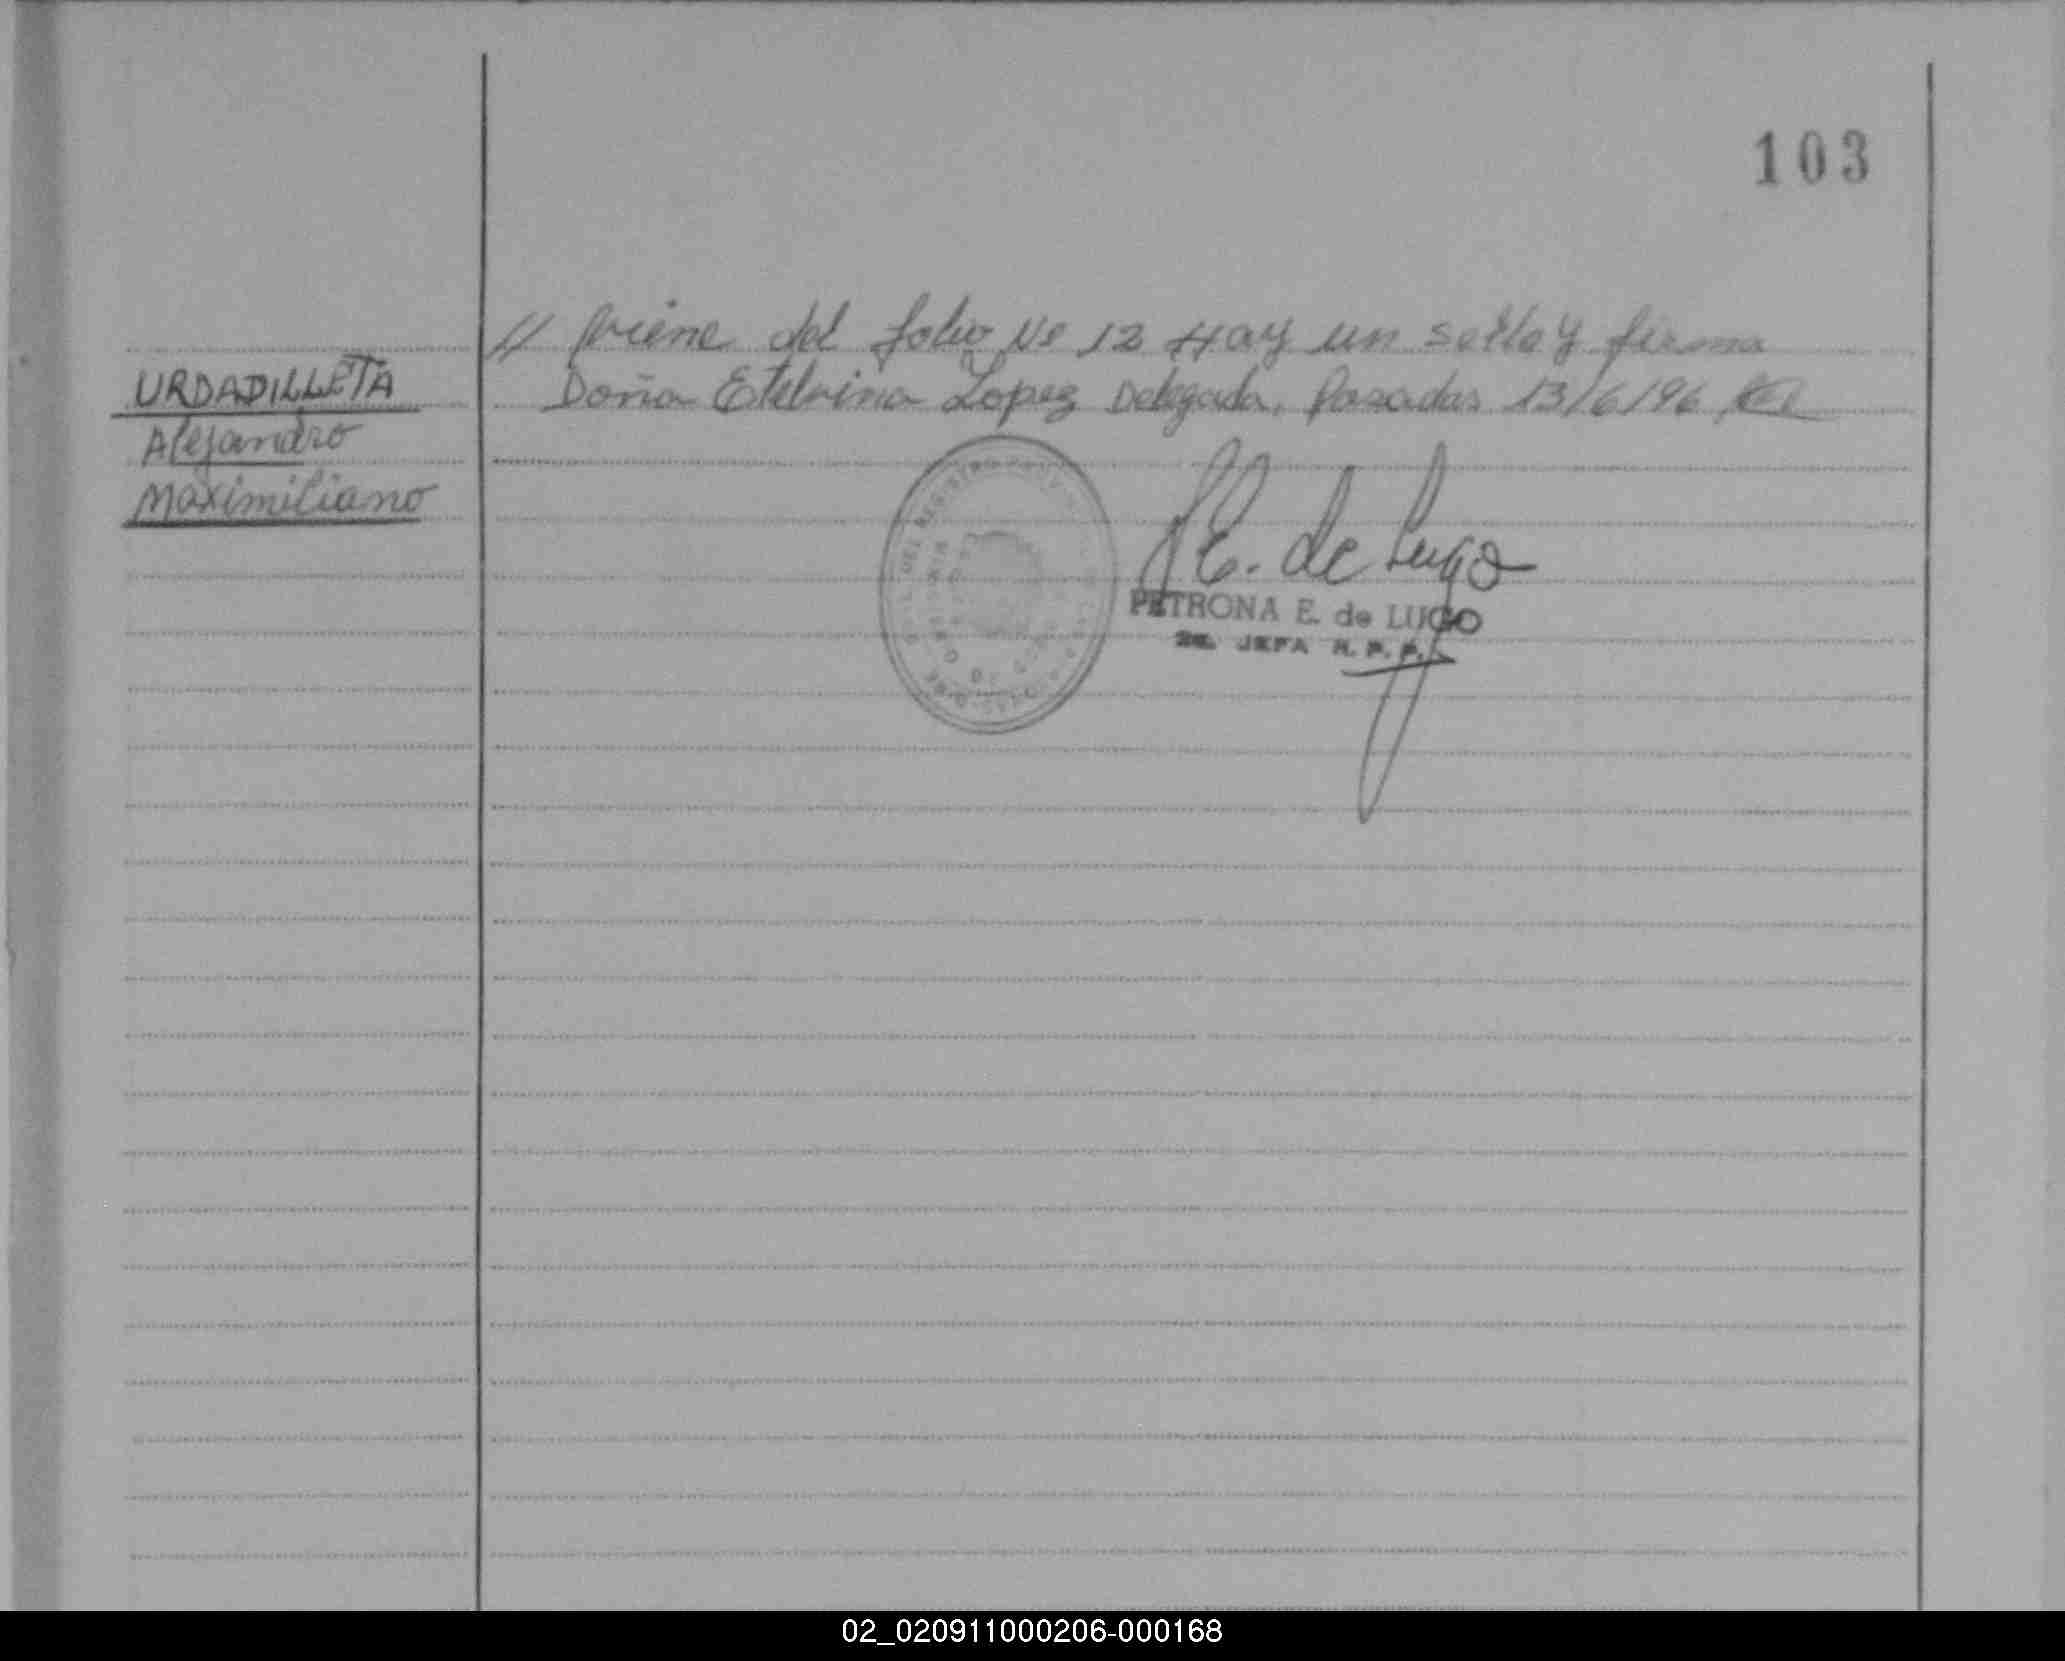 103
// Viene del folio Nº 12 Hay un sello y firma
Doña Etelvina Lopez Delegada, Posadas 13/6/96
URDADILLETA
Alejandro
Maximiliano
P E. de Lugo
PETRONA E. de LUGO
JEFA R. P. P.
02_020911000206-000168